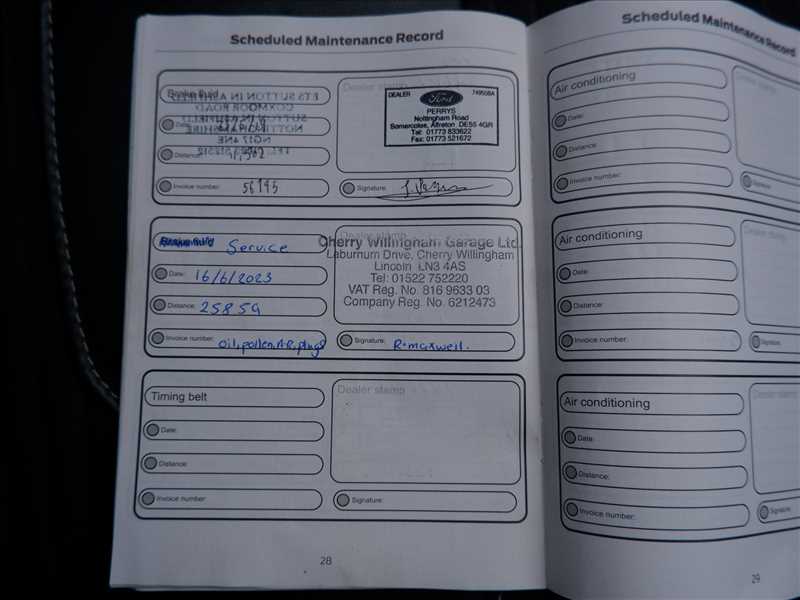 Scheduled Maintenance Record
Brake fluid
Date:
Distance:
Invoice number: 56195
Dealer stamp
DEALER 74950BA
Ford
PERRYS
Nottingham Road
Somercotes, Alfreton DE55 4GR
Tel: 01773 833622
Fax: 01773 521672
Signature:
Brake fluid Service
Date: 16/6/2023
Distance: 25859
Invoice number: oil, pollen, Air, plugs
Dealer stamp
Cherry Willingham Garage Ltd.
Laburnum Drive, Cherry Willingham
Lincoln LN3 4AS
Tel: 01522 752220
VAT Reg. No. 816 9633 03
Company Reg. No. 6212473
Signature: R.maxwell.
Timing belt
Date:
Distance:
Invoice number:
Dealer stamp
Signature:
28
Scheduled Maintenance Record
Air conditioning
Date:
Distance:
Invoice number:
Dealer stamp
Signature:
Air conditioning
Date:
Distance:
Invoice number:
Dealer stamp
Signature:
Air conditioning
Date:
Distance:
Invoice number:
Dealer
Signature:
29